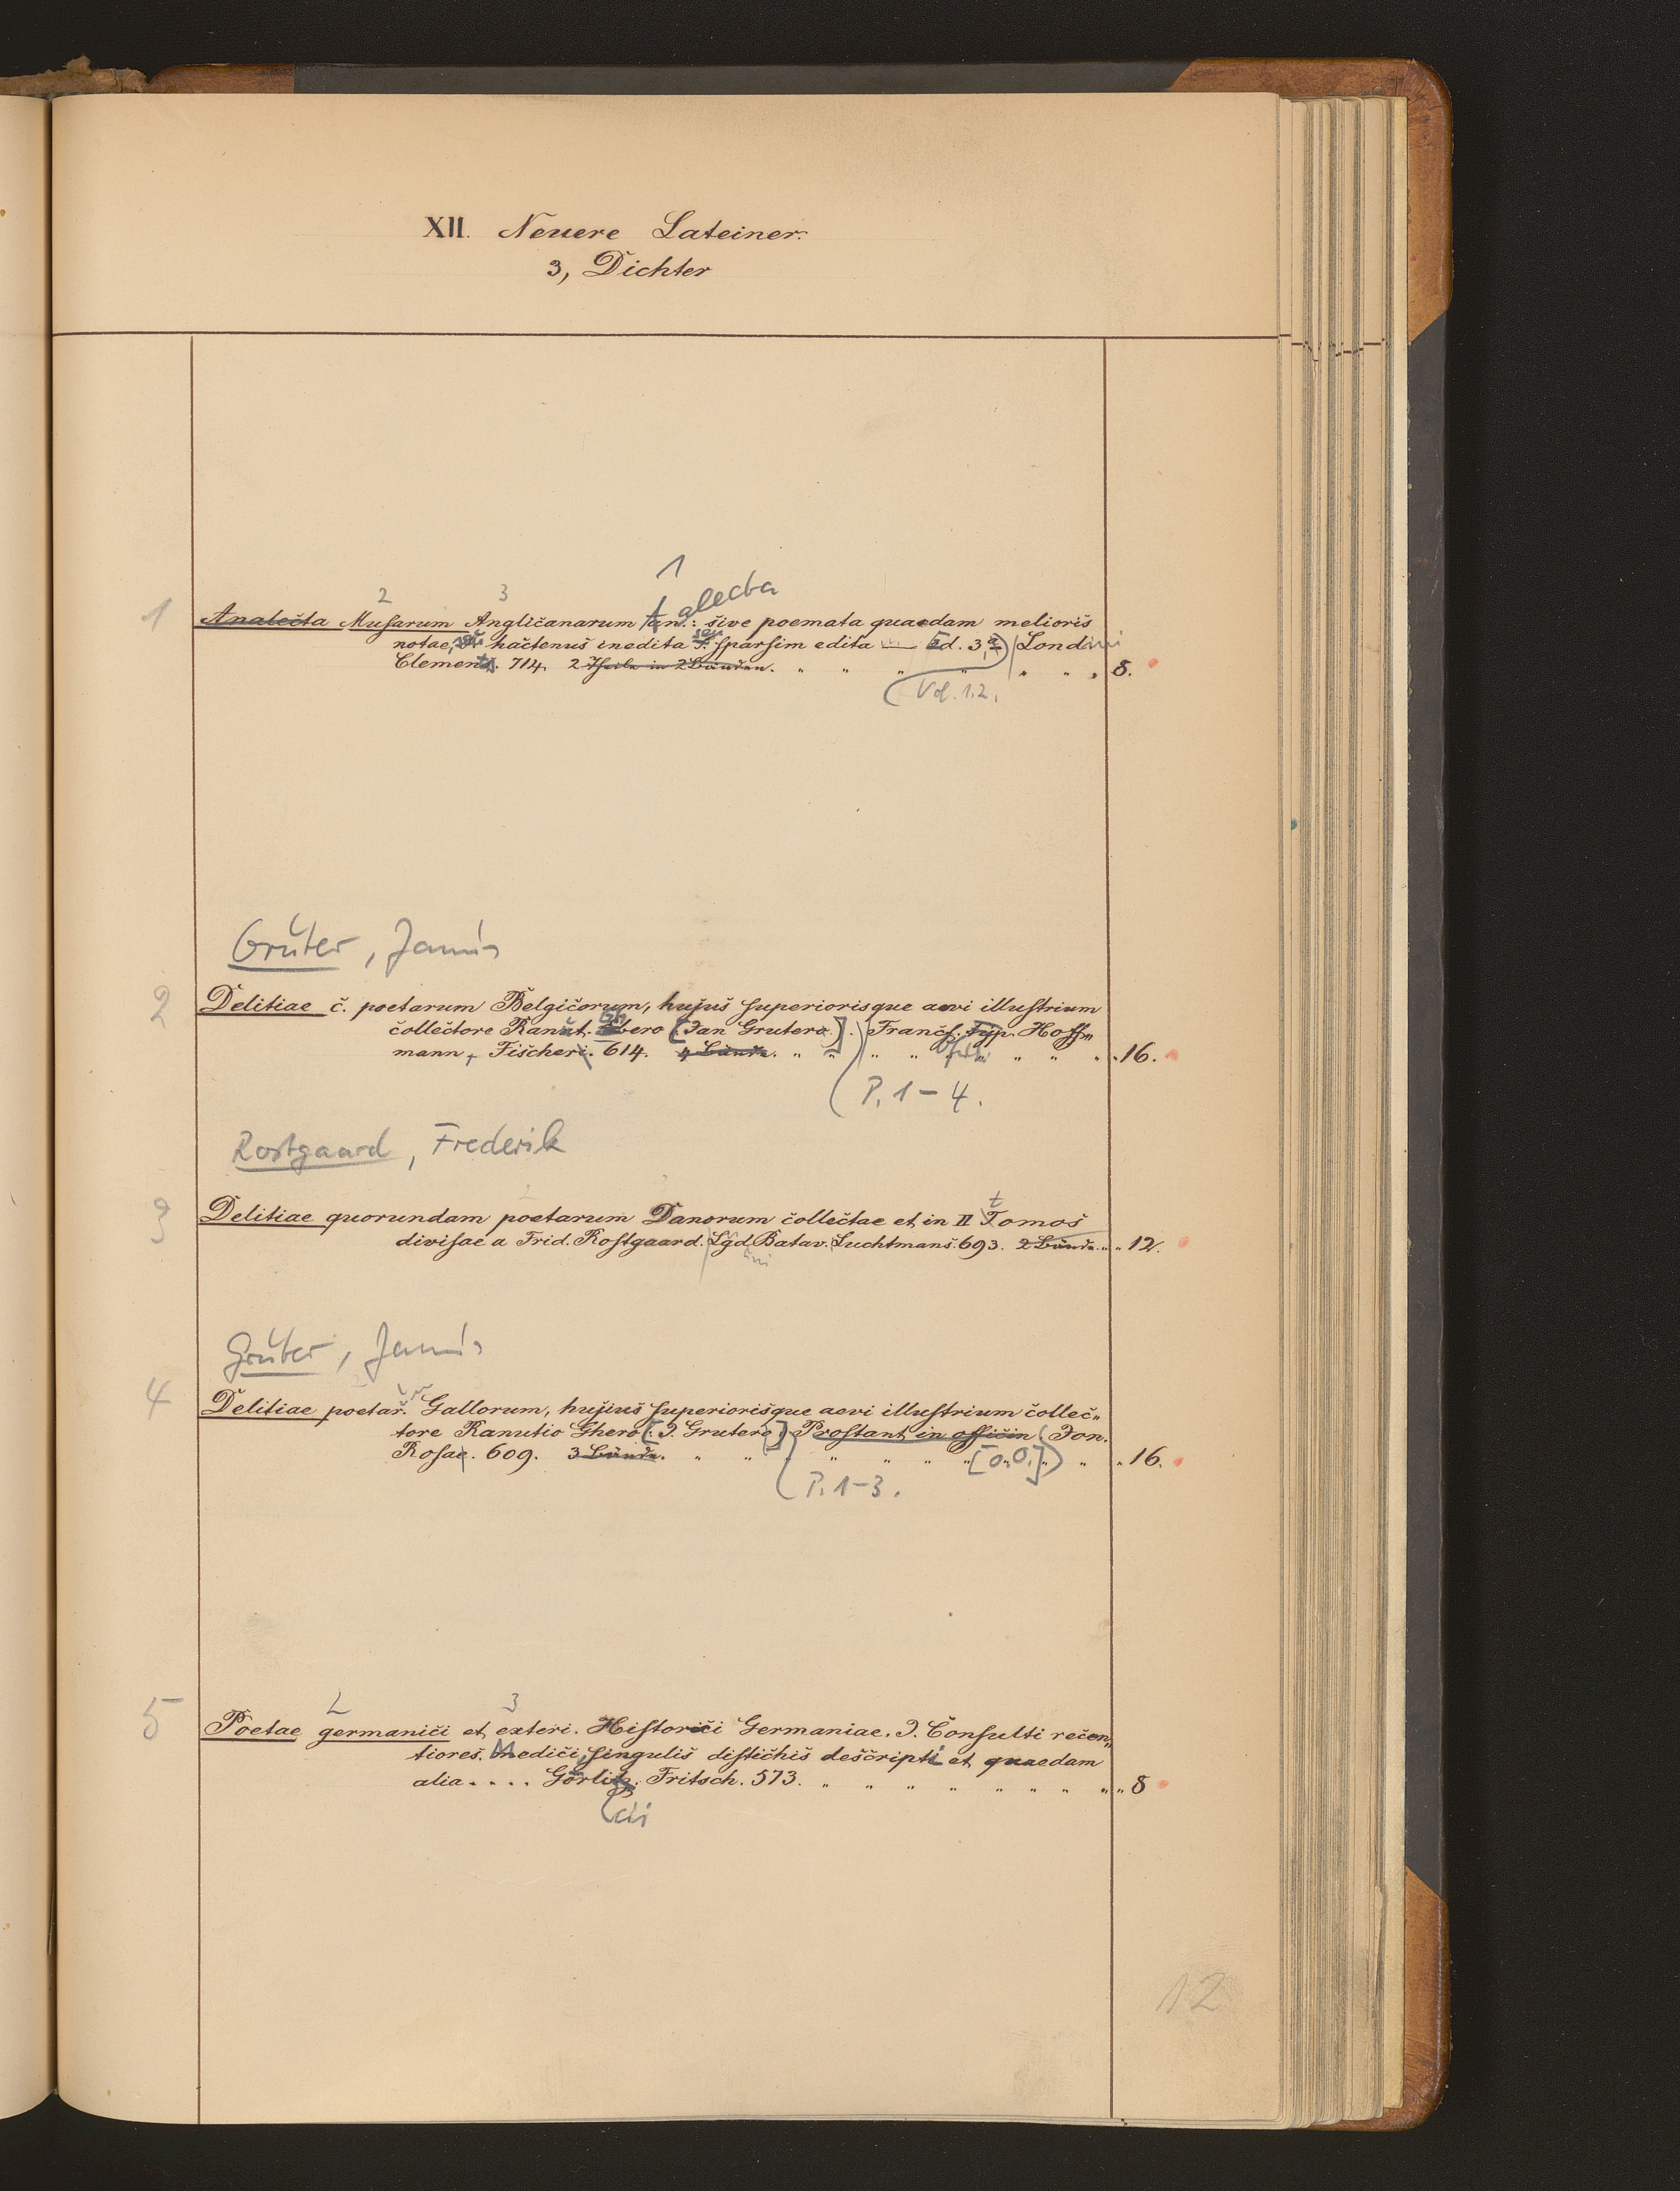 XII. Neuere Lateiner.
3, Dichter
1
2 3
1 Analecta Musarum Anglicanarum Analecta: sive poemata quaedam melioris
notae, seu hactenus inedita seu sparsim edita — Ed. 3,a) Londini
Clements. 714. 2 Theile in 2 Bänden. " " " " " " " 8.
(Vol. 1.2.
Gruter, Janus
2 Delitiae c. poetarum Belgicorum, hujus superiorisque aevi illustrium
collectore Ranut. Ghero [Jan Grutero.]. Francf. Typ. Hoff„
mann, Fischeri. 614. 4 Bände. " " " " " " " " 16.
(P. 1-4.
Rostgaard, Frederik
3 Delitiae quorundam poetarum Danorum collectae et in II Tomos
divisae a Frid. Rostgaard. Lgd. Batav. Luchtmans. 693. 2 Bände. " " 12.
Gruter, Janus
4 Delitiae poetar. Gallorum, hujus superiorisque aevi illustrium collec„
tore Ranutio Ghero [: J. Grutero:] Prostant in officin (Jon.
Rosae. 609. 3 Bände. " " " " " " [o.O.]) " " 16.
(P. 1-3.
2 3
5 Poetae germanici et exteri. Historici Germaniae. J. Consulti recen„
tiores. Medici, singulis distichis descripti et quaedam
alia.... Görlitz. Fritsch. 573. " " " " " " " " " 8
(cii
12